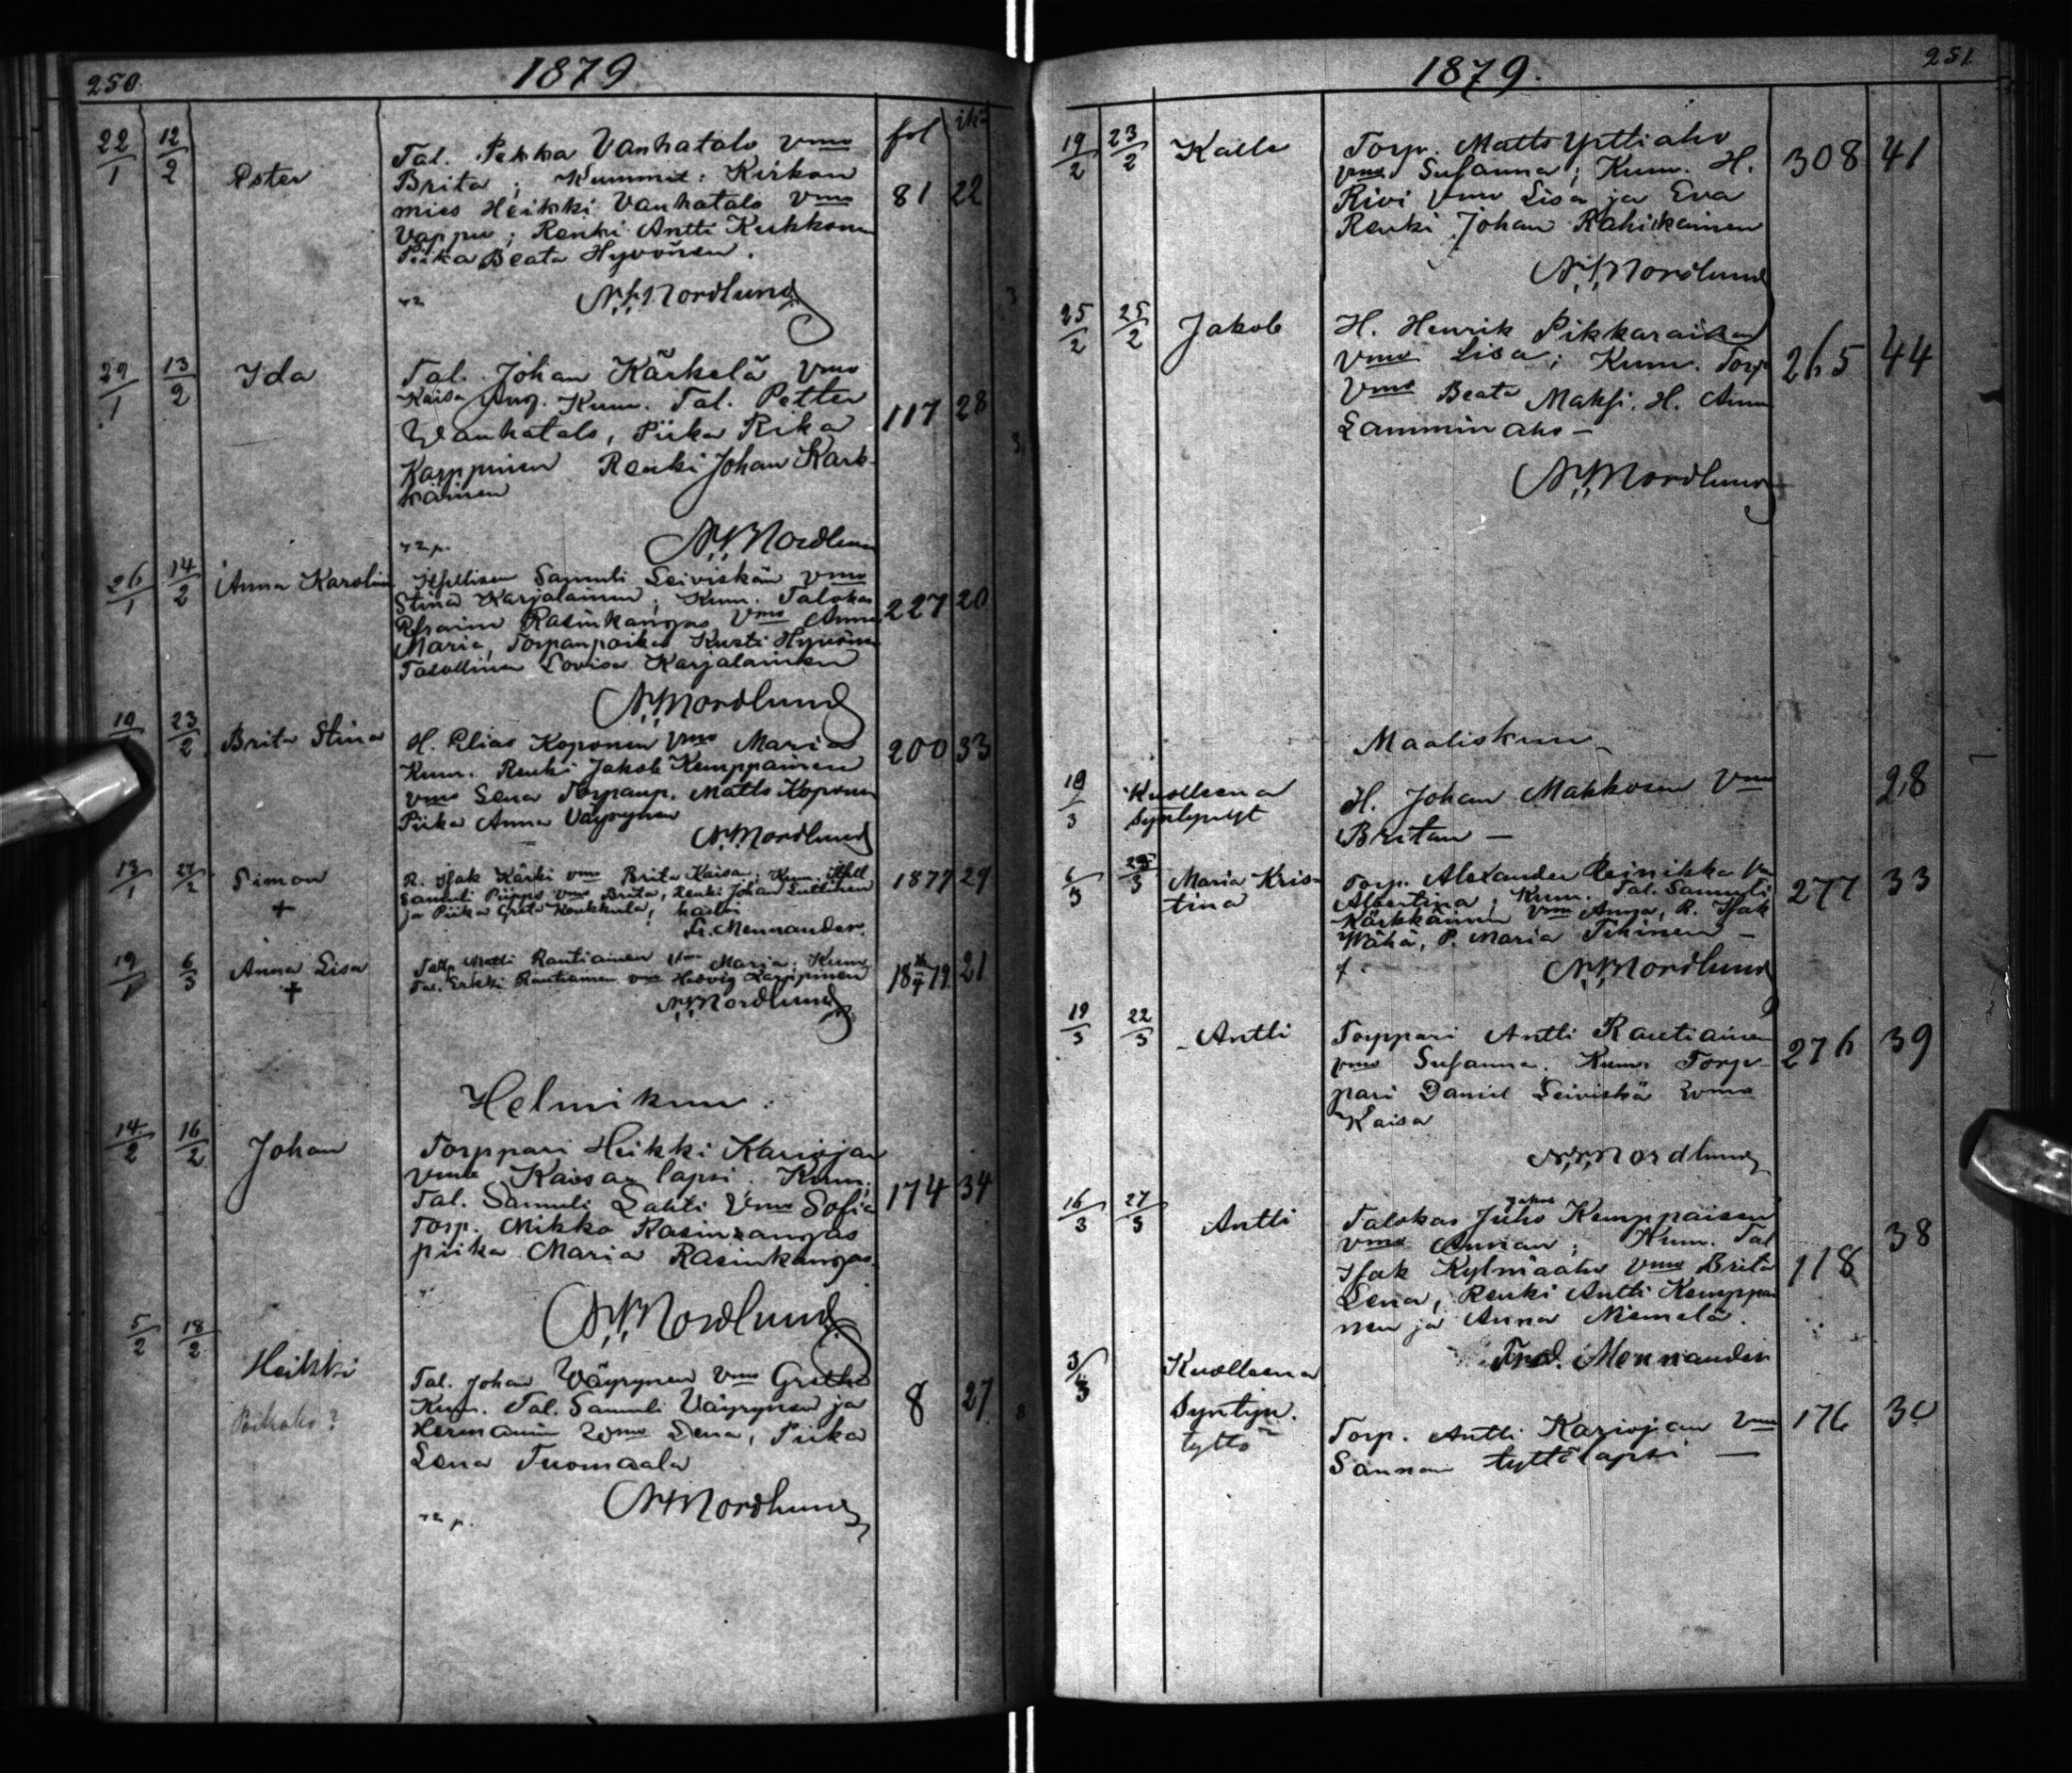 250.
1879
fol
ikä
22/1 12/2 Peter Tal. Pekka Vanhatalo Vmo
Brita; Kummit: Kirkon
mies Heikki Vanhatalo Vmo 81 22
Vappu; Renki Antti Kukkonen
Piika Beata Hyvönen.
N. Nordlund
29/1 13/2 Ida Tal. Johan Kärkelä Vmo
Kaisa Kum. Tal. Petter 117 28
Wanhatalo, Piika Rika
Karppinen Renki Johan Kärk-
käinen
N. Nordlund
26/1 14/2 Anna Karolina Itsellisen Samuli Leiviskän vmo
Stina Karjalainen; Kum. Talokas 227 20
Efraim Rasinkangas Vmo Anna
Maria, Torpanpoika Kusti Hyvönen
Talollinen Lovisa Karjalainen
N. Nordlund
19/ 23/2 Brita Stina H. Elias Koponen Vmo Maria 200 33
Kum. Renki Jakob Kemppainen
vmo Lena Torpanp. Matts Koponen
Piika Anna Väyrynen
N. Nordlund
13/1 27/2 Simon R. Isak Kärki vmo Brita Kaisa; Kum. Itsell 1877 29
+ Samuli Piippo vmo Brita, Renki Johan Luttinen
ja Piika Greta Keukkula, kaikki
Fr. Mennander.
19/1 6/3 Anna Lisa Matti Rautiainen Vmo Maria; Kum. 21
+ Tal. Erkki Rautiainen vmo Hedvig Karppinen
N. Nordlund
Helmikuu.
14/2 16/2 Johan Torppari Heikki Kariojan
Vmo Kaisan lapsi. Kum: 174 34
Tal. Samuli Lahti Vmo Sofia
Torp. Mikko Rasinkangas
piika Maria Rasinkangas.
N. Nordlund
5/2 18/2 Heikki Tal. Johan Wäyrynen Vmo Gretha 8 27
Kum. Tal. Samuli Väyrynen ja
Hermanni Wmo Lena, Piika
Lena Tuomaala
N. Nordlund
1879.
251
19/2 23/2 Kalle Torp. Matts Ylitiaho 308 41
vmo Susanna; Kum. H.
Kivi Vmo Lisa ja Eva
Renki Johan Rahikainen
N. Nordlund
25/2 25/2 Jakob H. Henrik Pikkaraisen
Vmo Lisa; Kum. Torp 265 44
Vmo Beata Maksi. H. Anna
Lamminaho —
N. Nordlund
Maaliskuu
19/3 Kuolleena H. Johan Makkosen Vmo 28
syntynyt Britan —
6/3 Maria Kris- Torp. Alexander Reinikka Vmo 277 33
tina Albertina; Kum. Tal. Samuli
Kärkkäinen Vmo Anna, R. Isak
Wähä, P. Maria Tihinen —
N. Nordlund
19/3 22/3 Antti Torppari Antti Rautiainen 276 39
vmo Susanna. Kum. Torp-
pari Daniel Leiviskä Wmo
Kaisa
N. Nordlund
16/3 27/3 Antti Talokas Juho Kemppaisen 38
vmo Annan; Kum. Tal
Isak Kylmäaho Vmo Brita 118
Lena, Renki Antti Kemppai
nen ja Anna Niemelä.
Fred. Mennander
3/3 Kuolleena
Syntyn. Torp. Antti Kariojan Vmo 176 30
tyttö Sannan tyttölapsi —